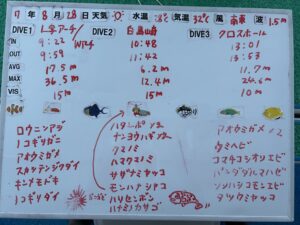 7年 8月 28日 天気 水温 28℃ 気温 32℃ 風 南東 波 1.5m
DIVE1 DIVE2 白鳥崎 DIVE3 クロスホール
IN 9:22 10:48 13:01
OUT 9:59 11:42 13:53
AVG 17.5m 6.2m 11.7m
MAX 36.5m 12.4m 24.6m
VIS 15m
ロウニンアジ ハタンポ アオウミガメ
ノコギリダイ ナンヨウハギ タミハビ
アオウミガメ クマノミ コマチコシオリエビ
スカシテンジクダイ ハマクマノミ パンダダルマハゼ
キンメモドキ サザナミヤッコ
モンハナシャコ タツウミヤッコ
ノコギリダイ ハリセンボン
ハナミノカサゴ